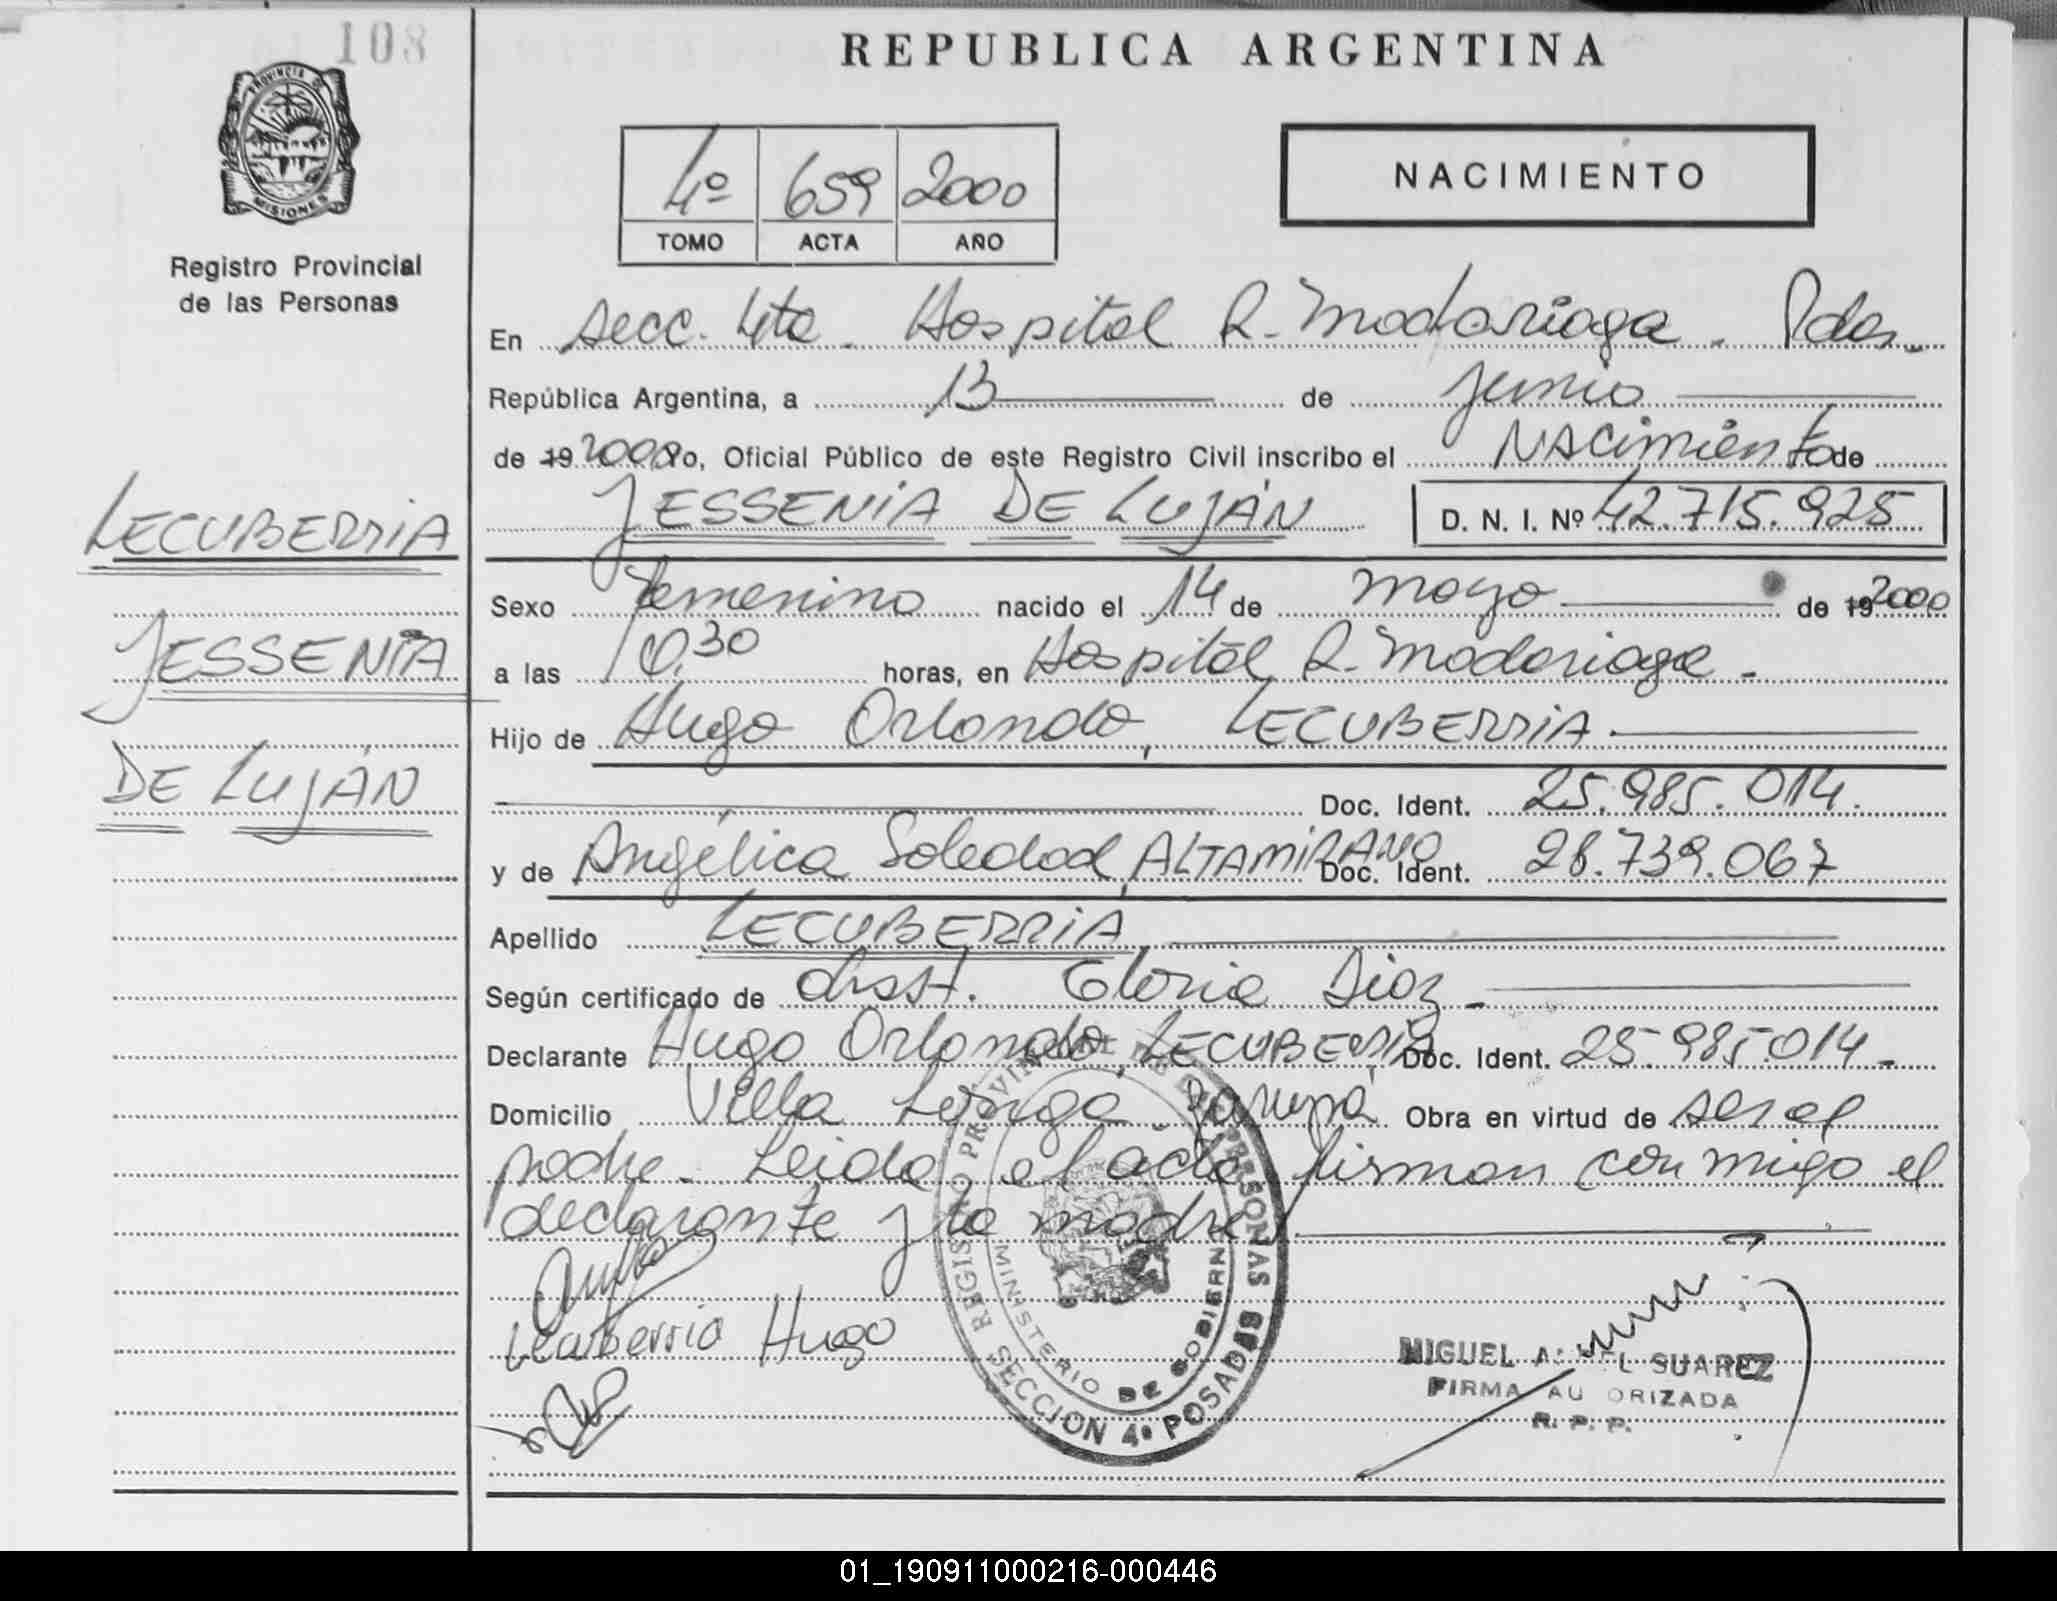 108
REPUBLICA ARGENTINA
PROVINCIA DE
MISIONES
Registro Provincial
de las Personas
4º 659 2000
TOMO ACTA AÑO
NACIMIENTO
En Secc. 4ta. Hospital R. Madariaga. Pdas.
República Argentina, a 13 de junio
de 19 2000 Yo, Oficial Público de este Registro Civil inscribo el NACimiento de
JESSENIA DE LUJÁN D. N. I. Nº 42.715.925
LECUBERRIA
JESSENIA
DE LUJÁN
Sexo femenino nacido el 14 de mayo de 19 2000
a las 10,30 horas, en Hospital R. Madariaga.
Hijo de Hugo Orlando, LECUBERRIA.
Doc. Ident. 25.985.014.
y de Angélica Soledad, ALTAMIRANO Doc. Ident. 28.739.067
Apellido LECUBERRIA
Según certificado de obsst. Gloria Diaz.
Declarante Hugo Orlando, LECUBERRIA Doc. Ident. 25.985.014.
Domicilio Villa Longa Garupá Obra en virtud de ser el
padre. Leida el acta firman conmigo el
declarante y la madre.
Lecuberria Hugo
REGISTRO PROVINCIAL DE LAS PERSONAS
MINISTERIO DE GOBIERN
SECCION 4ª POSADAS
MIGUEL A. EL SUAREZ
FIRMA AU ORIZADA
R. P. P.
01_190911000216-000446